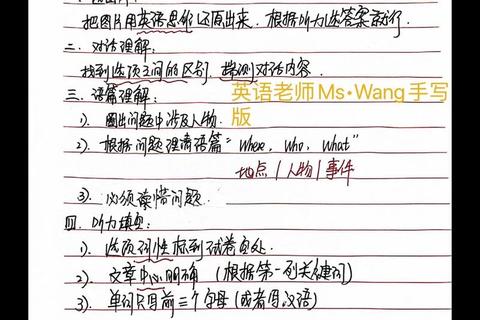 把图片用英语思维还原出来,根据听力选答案就行.
二、对话理解:
找到选项之间的区别,猜测对话内容.
三、语篇理解:
英语老师Ms·Wang手写版
1). 圈出问题中涉及人物.
2). 根据问题理清语篇"where, who, what"
地点 / 人物 / 事件
3). 必须读懂问题.
四、听力填空:
1). 选项词性标到试卷空处.
2). 文章中心明确 (根据第一列关键词)
3) 单词只写前三个字母 (或者写汉语)